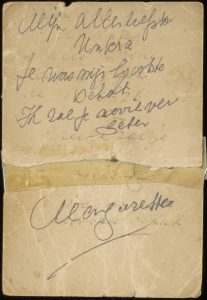 Mijn Allerliefste
Unkra
Je was mijn Grootste
Schat
Ik zal je nooit ver
geten
Margaretha